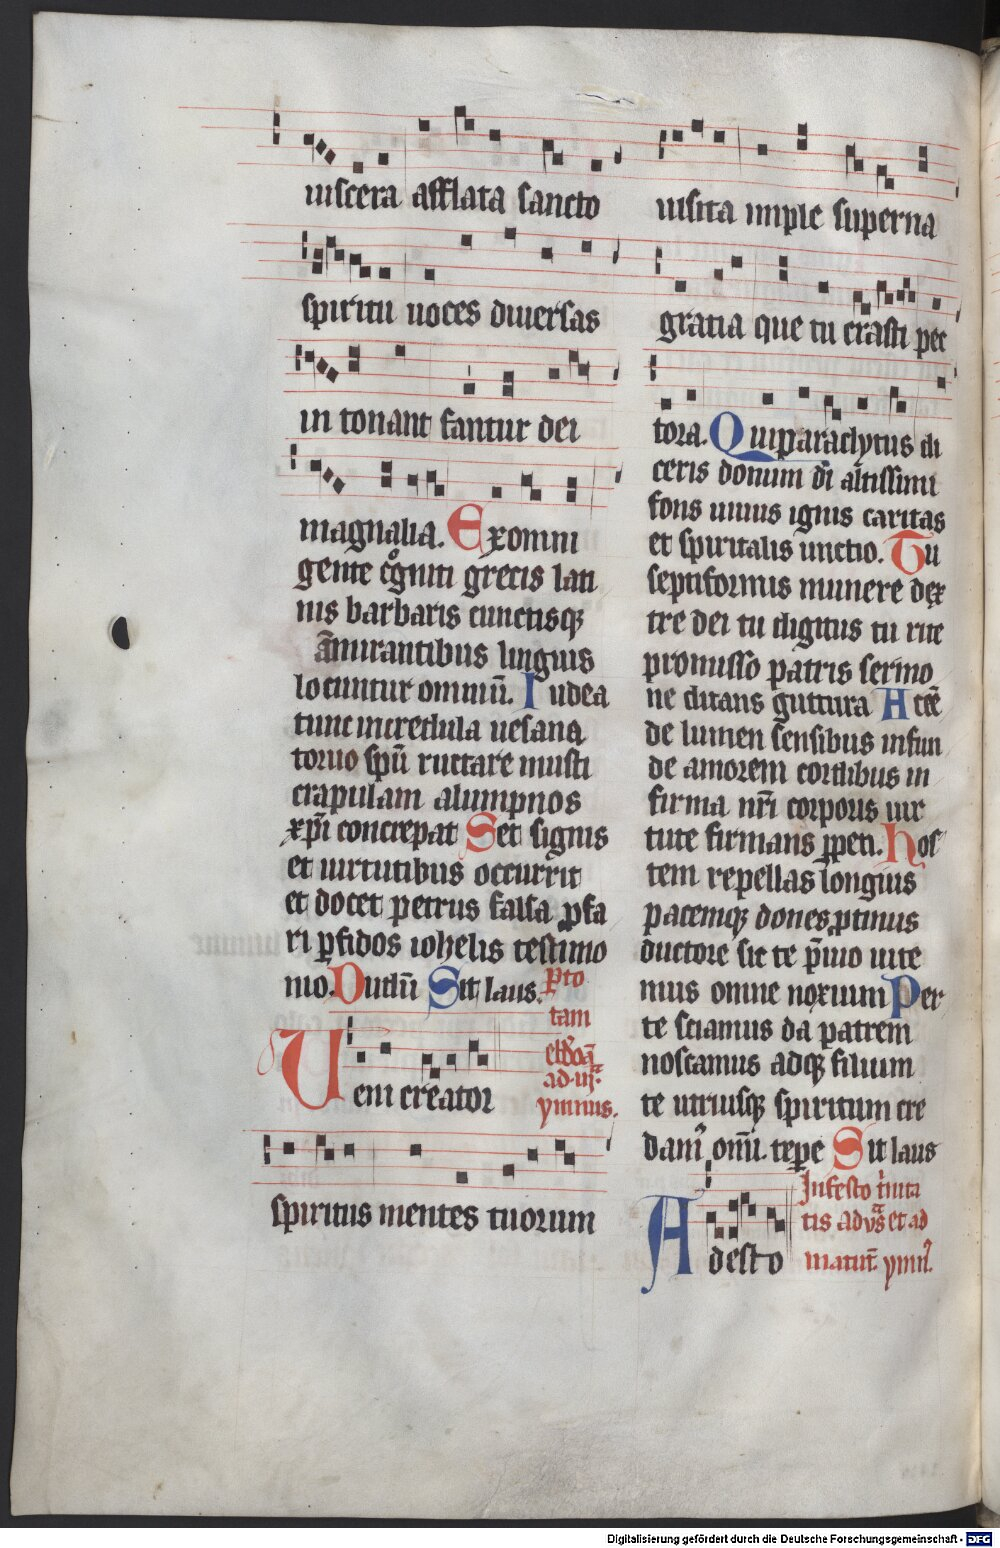 uiscera afflata sancto
spiritu uoces diuersas
in tonant fantur dei
magnalia. Exomni
gente cogniti grecis lati
nis barbaris cunctisq
amirantibus linguis
locuntur omniū. Iudea
tunc incredula uesana
toruo spū ructare musti
crapulam alumpnos
xpi concrepat Set signis
et uirtutibus occurrit
et docet petrus falsa pfa
ri pfidos iohelis testimo
nio. Dudū Sit laus. Pto
tam
ebdoā
ad .iij.
ymnus.
Ueni creator
spiritus mentes tuorum
uisita imple superna
gratia que tu creasti pec
tora. Qui paraclytus di
ceris donum dī altissimi
fons uiuus ignis caritas
et spiritalis unctio. Tu
septiformis munere dex
tre dei tu digitus tu rite
promisso patris sermo
ne ditans guttura Accē
de lumen sensibus infun
de amorem cordibus in
firma nrī corporis uir
tute firmans ppeti. Hos
tem repellas longius
pacemq dones ptinus
ductore sic te pūio uite
mus omne noxium Per
te sciamus da patrem
noscamus adq filium
te utriusq spiritum cre
dam omī tepe Sit laus
Infesto trinita
tis ad vs et ad
matut ymn
Adesto
Digitalisierung gefördert durch die Deutsche Forschungsgemeinschaft - DFG